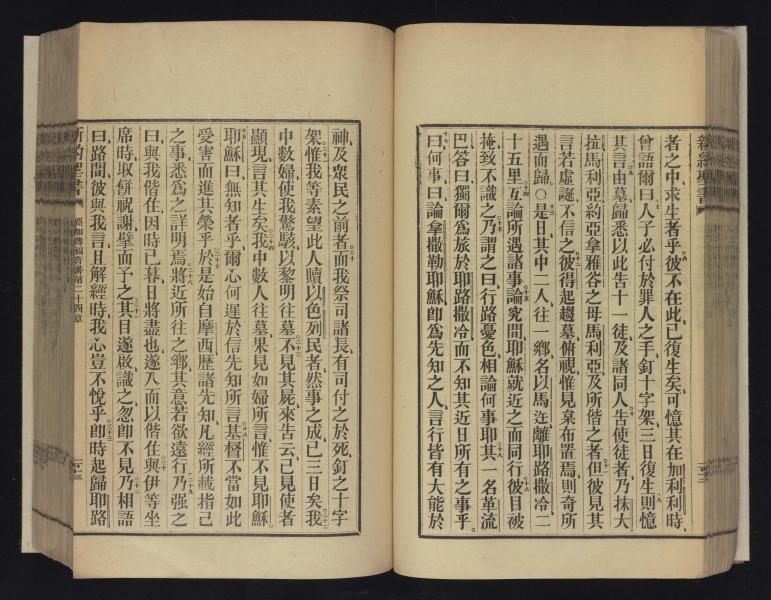 新約聖書
者之中求生者乎彼不在此已復生矣可憶其在加利利時
曾語爾曰人子必付於罪人之手釘十字架三日復生則憶
其言由墓歸悉以此告十一徒及諸同人吿使徒者乃抹大
拉馬利亞約亞拿雅各之母馬利亞及所偕之者但彼見其
言若虛誕不信之彼得起趨墓俯視惟見枲布置焉則奇所
遇而歸○是日其中二人往一鄉名以馬迕離耶路撒冷二
十五里互論所遇諸事論究間耶穌就近之而同行彼目被
掩致不識之乃謂之曰行路憂色相論何事耶其一名革流
巴答曰獨爾爲旅於耶路撒冷而不知其近日所有之事乎
曰何事曰論拿撒勒耶穌卽爲先知之人言行皆有大能於
神及衆民之前者而我祭司諸長有司付之於死釘之十字
架惟我等素望此人贖以色列民者然事之成已三日矣我
中數婦使我驚駭以黎明往墓不見其屍來吿云已見使者
顯現言其生矣我中數人往墓果見如婦所言惟不見耶穌
耶穌曰無知者乎爾心何遲於信先知所言基督不當如此
受害而進其榮乎於是始自摩西歷諸先知凡經所載指己
之事悉爲之詳明焉將近所往之鄉其意若欲遠行乃强之
曰與我偕住因時已暮日將盡也遂入而以偕住與伊等坐
席時取餠祝謝擘而予之其目遂啟識之忽卽不見乃相語
曰路間彼與我言且解經時我心豈不悅乎卽時起歸耶路
新約聖書 路加傳福音書第二十四章